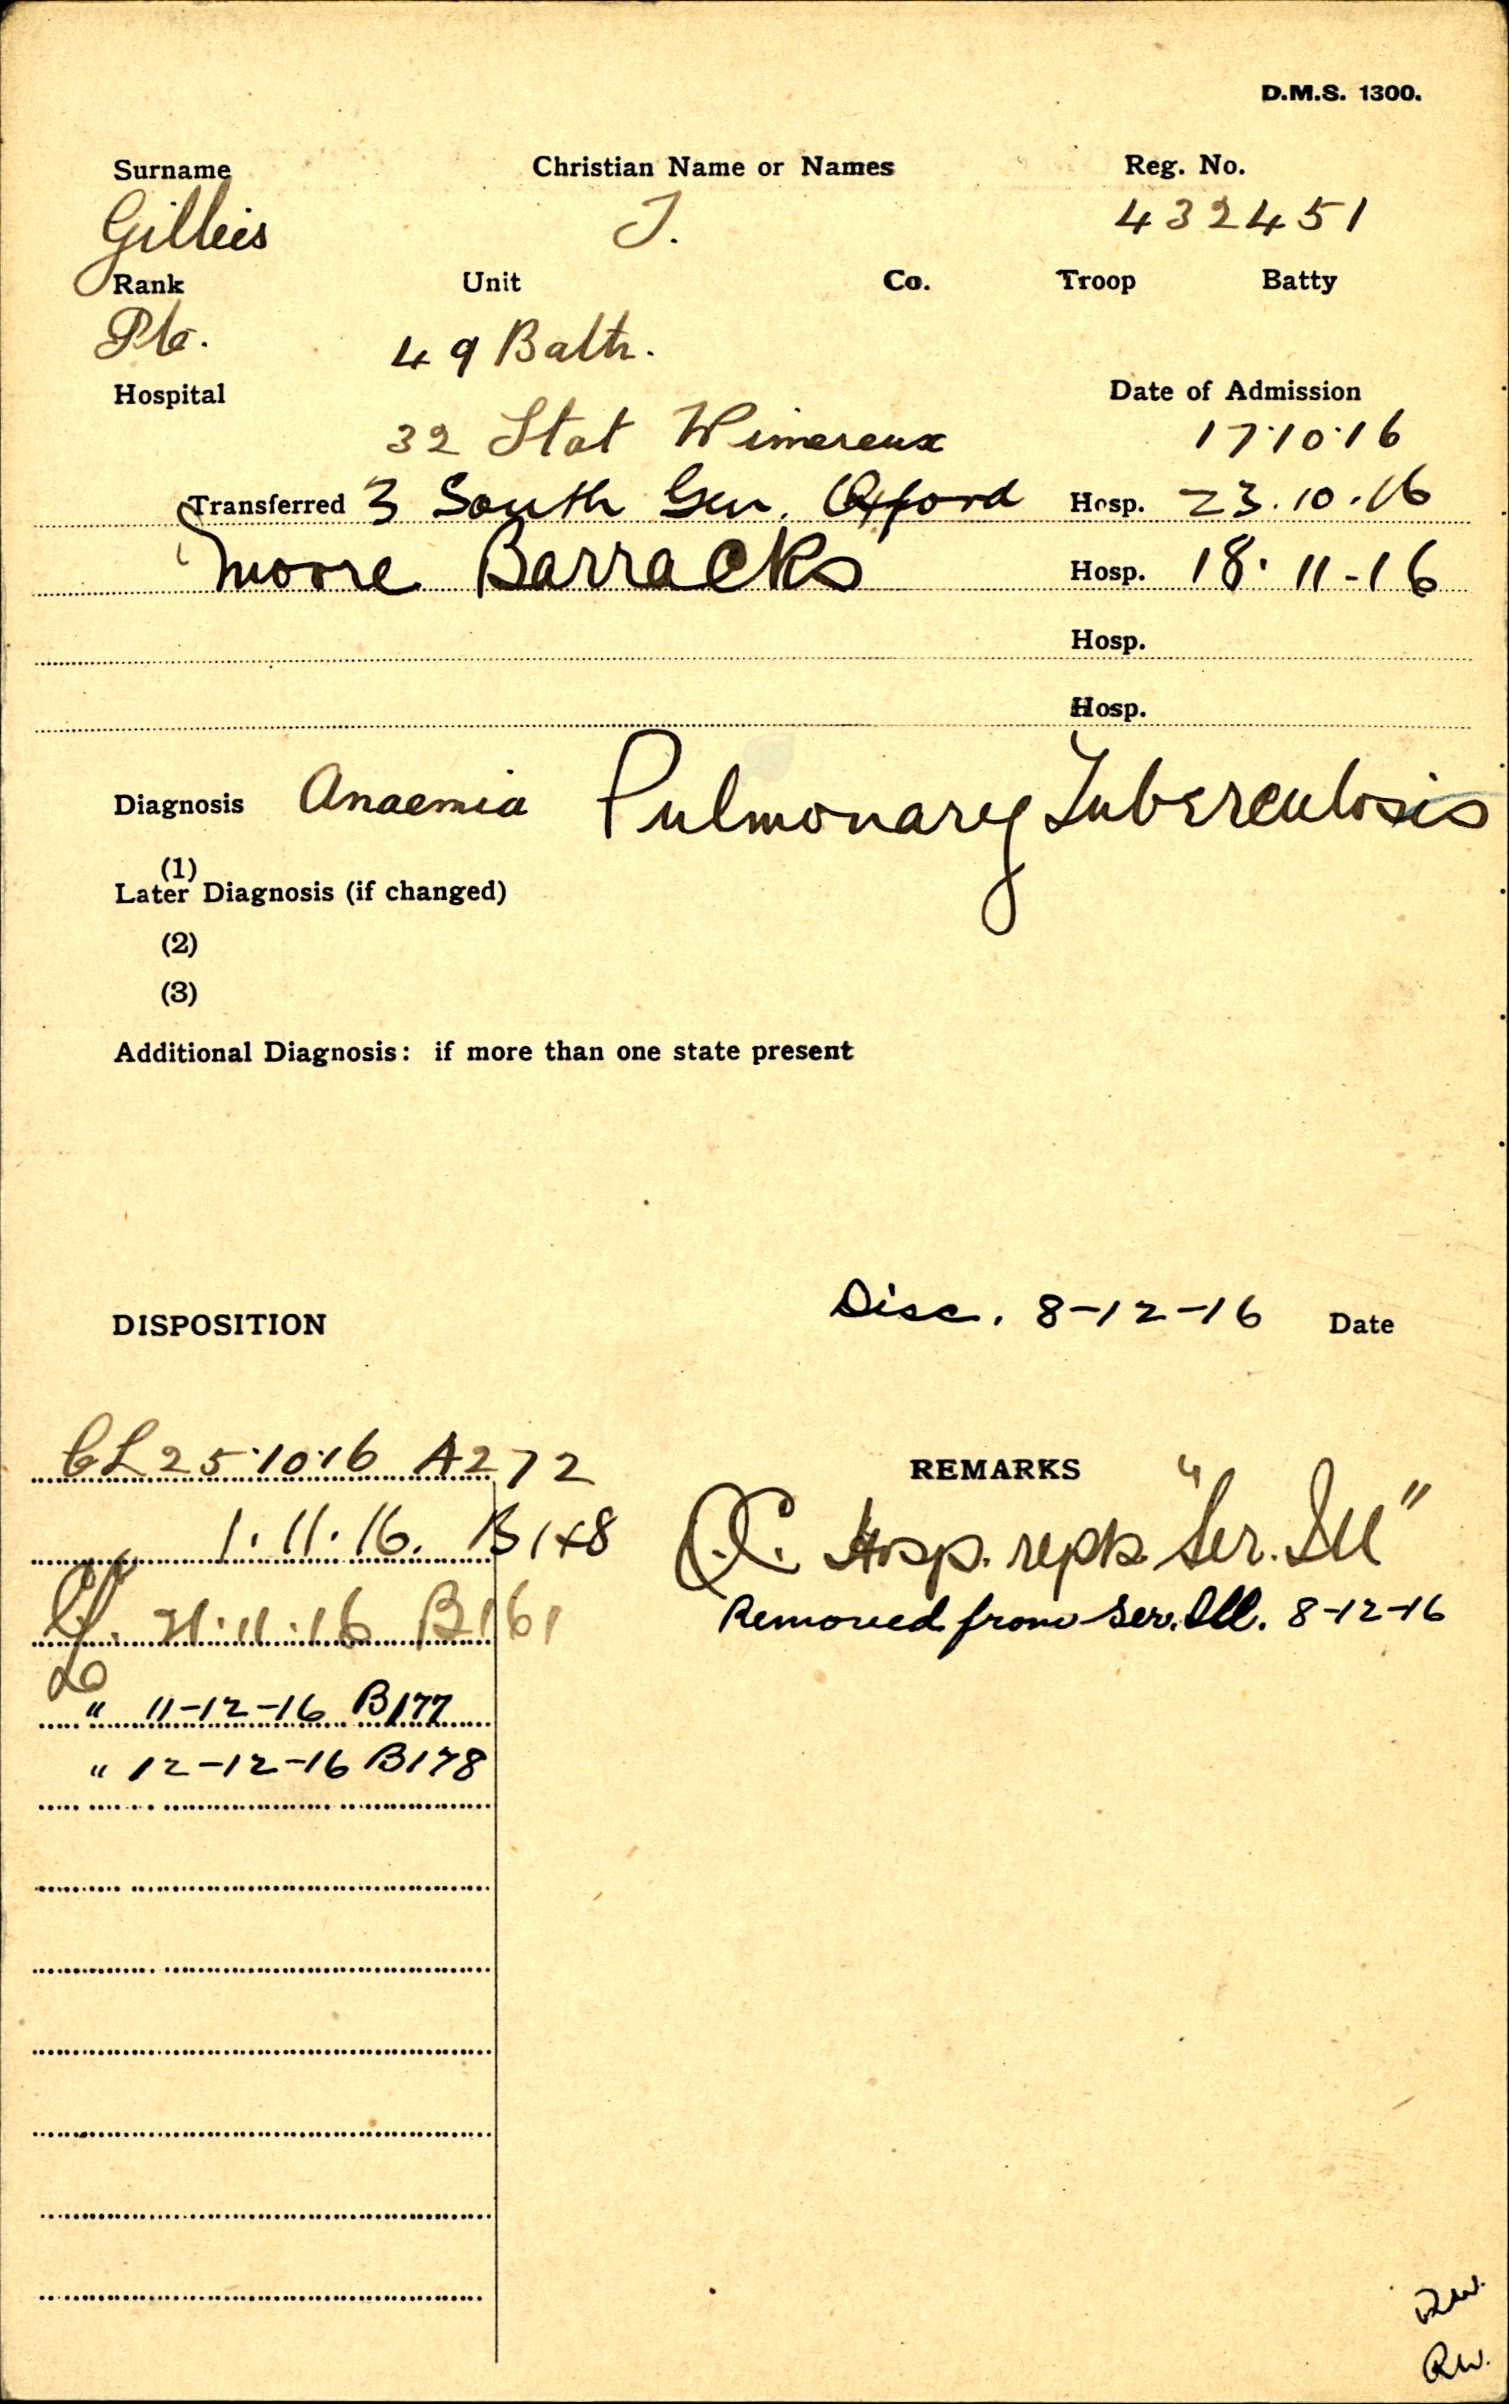 D.M.S. 1300.
Surname Christian Name or Names Reg. No.
Gillies J. 432451
Rank Unit Co. Troop Batty
Pte. 49 Baltn.
Hospital Date of Admission
32 Stat Wimereux 17·10·16
Transferred 3 South Gen. Oxford Hosp. 23.10.16
Moore Barracks Hosp. 18·11-16
Hosp.
Hosp.
Diagnosis Anaemia Pulmonary Tuberculosis
(1)
Later Diagnosis (if changed)
(2)
(3)
Additional Diagnosis: if more than one state present
DISPOSITION Disc. 8-12-16 Date
CL 25·10·16 A272
REMARKS
1.11.16. B148
O.C. Hosp. repts "Ser. Ill"
21.11.16 B161
Removed from Ser. Ill. 8-12-16
" 11-12-16 B177
" 12-12-16 B178
RW.
RW.